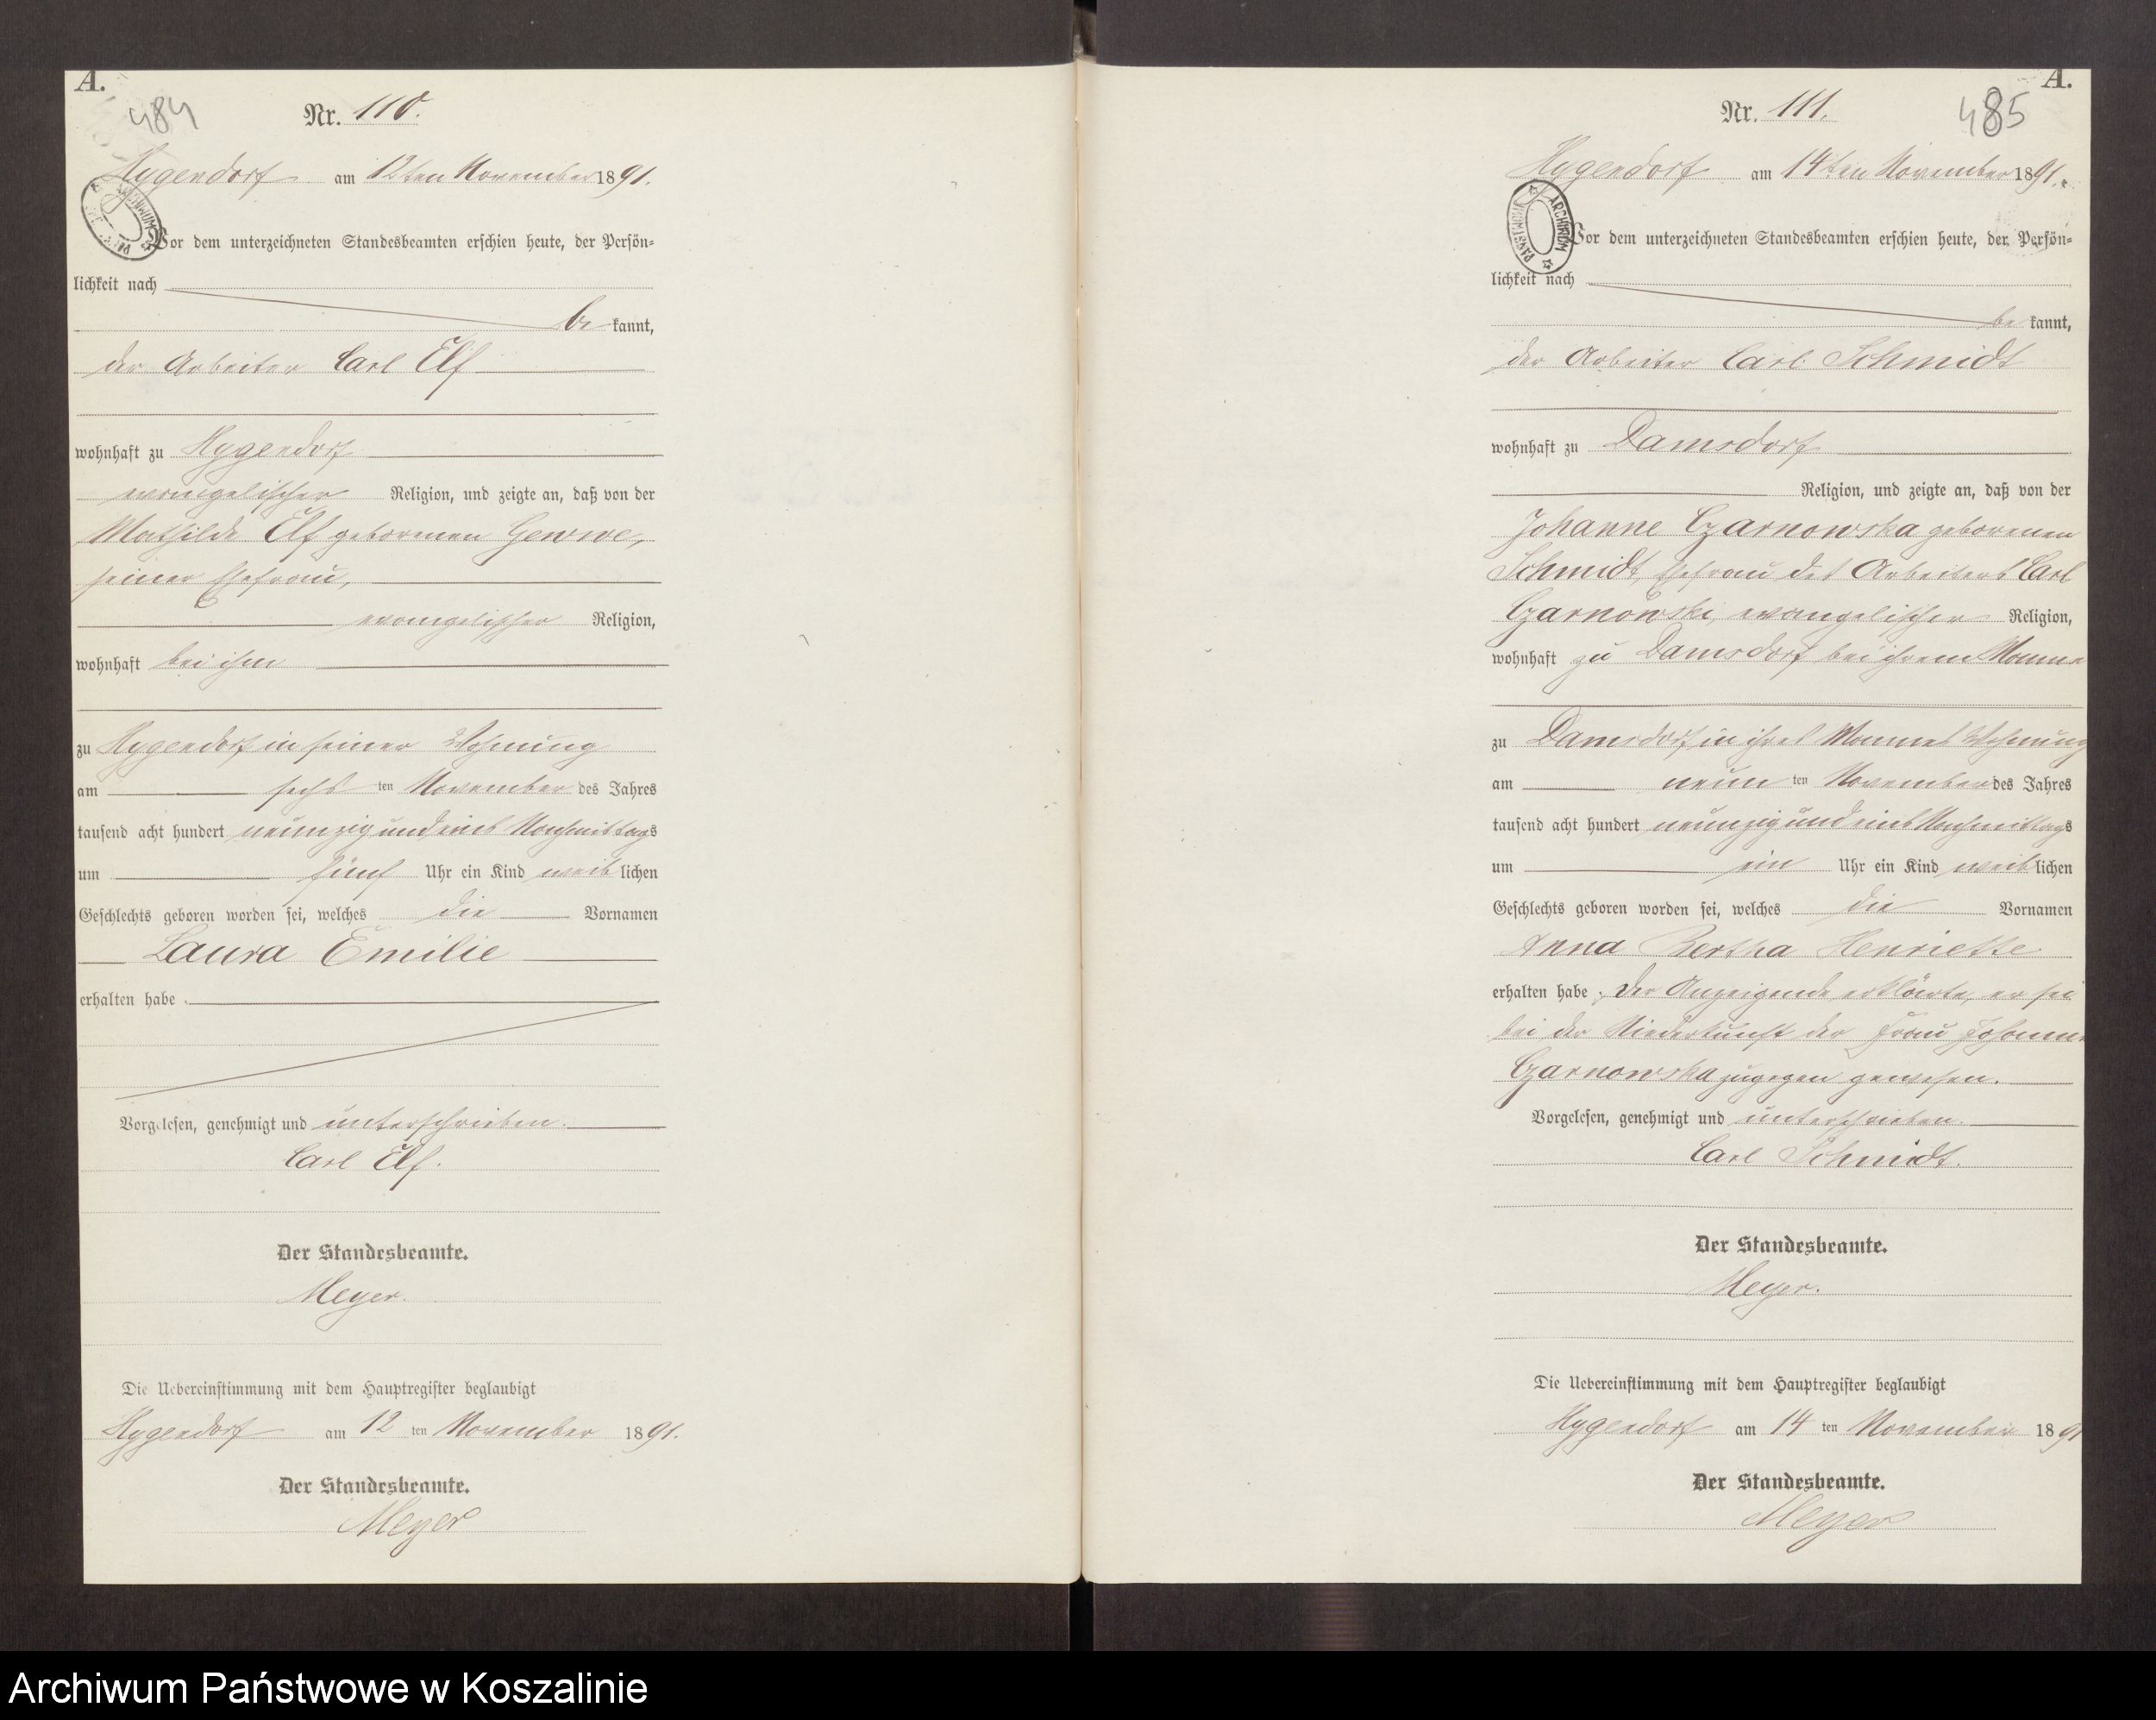 A.
484
Nr. 110.
Hygendorf am 12ten November 1891.
Vor dem unterzeichneten Standesbeamten erschien heute, der Persön=
lichkeit nach
be kannt,
der Arbeiter Carl Elf
wohnhaft zu Hygendorf
evangelischer Religion, und zeigte an, daß von der
Mathilde Elf geborenen Gewwe,
seiner Ehefrau,
evangelischer Religion,
wohnhaft bei ihm
zu Hygendorf in seiner Wohnung
am sechs ten November des Jahres
tausend acht hundert neunzig und eins Nachmittags
um fünf Uhr ein Kind weib lichen
Geschlechts geboren worden sei, welches die Vornamen
Laura Emilie
erhalten habe
Vorgelesen, genehmigt und unterschrieben.
Carl Elf.
Der Standesbeamte.
Meyer.
Die Uebereinstimmung mit dem Hauptregister beglaubigt
Hygendorf am 12 ten November 1891.
Der Standesbeamte.
Meyer
A.
485
Nr. 111.
Hygendorf am 14ten November 1891.
ARCHIWUM PAŃSTWOWE
Vor dem unterzeichneten Standesbeamten erschien heute, der Persön=
lichkeit nach
be kannt,
der Arbeiter Carl Schmidt
wohnhaft zu Damsdorf
Religion, und zeigte an, daß von der
Johanne Czarnowska geborenen
Schmidt, Ehefrau des Arbeiters Carl
Czarnowski, evangelischer Religion,
wohnhaft zu Damsdorf bei ihrem Manne
zu Damsdorf in ihres Mannes Wohnung
am neun ten November des Jahres
tausend acht hundert neunzig und eins Nachmittags
um ein Uhr ein Kind weib lichen
Geschlechts geboren worden sei, welches die Vornamen
Anna Bertha Henriette
erhalten habe; der Anzeigende erklärte, er sei
bei der Niederkunft der Frau Johanne
Czarnowska zugegen gewesen.
Vorgelesen, genehmigt und unterschrieben.
Carl Schmidt.
Der Standesbeamte.
Meyer.
Die Uebereinstimmung mit dem Hauptregister beglaubigt
Hygendorf am 14 ten November 1891
Der Standesbeamte.
Meyer
Archiwum Państwowe w Koszalinie